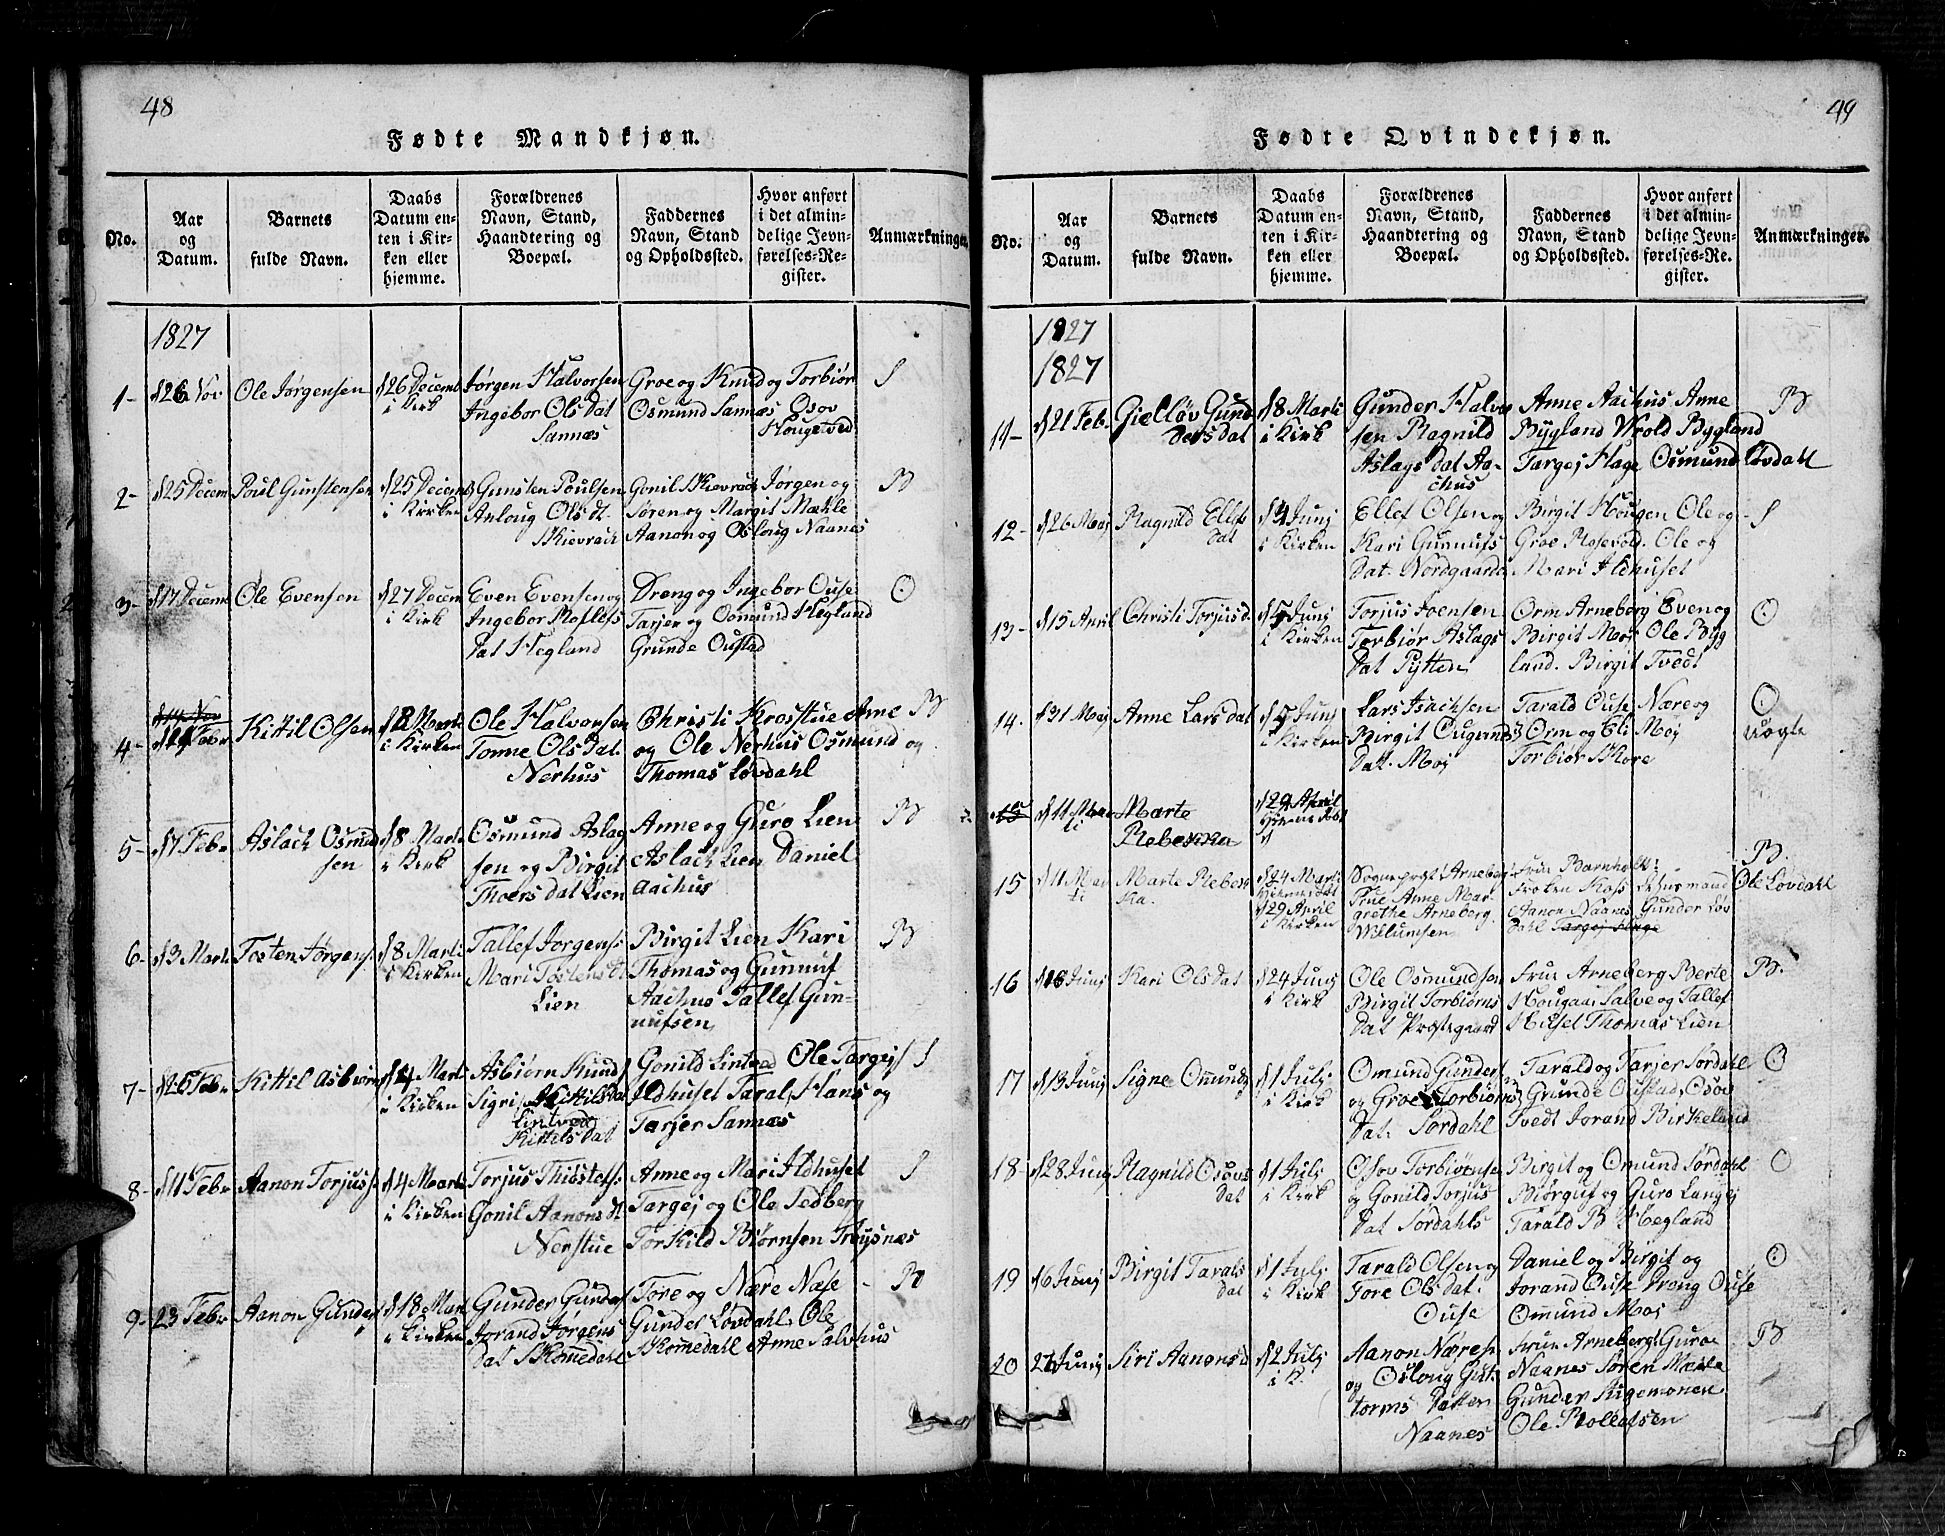 48
Fødte Mandkjøn.
No.
Aar
og
Datum.
Barnets
fulde Navn.
Daabs
Datum en-
ten i Kir-
ken eller
hjemme.
Forældrenes
Navn, Stand,
Haandtering og
Boepæl.
Faddernes
Navn, Stand
og Opholdssted.
Hvor anført
i det almin-
delige Jevn-
førelses-Re-
gister.
Anmærkninger.
1827
1-
d 26 Nov
Ole Jørgensen
d 26 Decemb
i Kirk
Jørgen Halvorsen
Ingebor Ols Dat
Sannæs
Groe og Knud og Torbiør
Osmund Sannæs Osov
Hougetved
S
2-
d 25 Decem
Poul Gunstensen
d 25 Decem
i Kirken
Gunsten Poulsen
Anloug Ols dt.
Skievrach
Gonil Skievrach Jørgen og
Søren og Margit Mækle
Aanon og Osloug Naanes
B
3-
d 17 Decemb
Ole Evensen
d 27 Decem
i Kirk
Even Evensen og
Ingebor Roflefs
Dat Hegland
Dreng og Ingebor Ouse
Tarjer og Osmund Hegland
Grunde Oustad
O
4-
d 14 Nov
d 14 Feb
Kittil Olsen
d 8 Marti
i Kirken
Ole Halvorsen
Tonne Ols Dat
Nerhus
Christi Krosstue Anne
og Ole Nerhus Osmund og
Thomas Løvdahl
B
5-
d 7 Feb
Aslach Osmund
sen
d 8 Marti
i Kirk
Osmund Aslag
sen og Birgit
Thoers dat Lien
Anne og Guro Lien
Aslach Lien Daniel
Aachus
B
6-
d 3 Marti
Tosten Jørgens
d 8 Marti
i Kirken
Tallef Jorgens
Mari Tostens dt
Lien
Birgit Lien Kari
Thomas og Gunnuf
Aachus Tallef Gun-
nufsen
B
7-
d 26 Feb
Kittil Asbiørns
d 4 Marti
i Kirken
Asbiørn Knuds
Sigri Kittils Dat
Lintved
Kittils Dat
Gonild Lintved Ole Targej
Ildhuset Taral Hans og
Tarjer Sannæs
S
8-
d 11 Feb
Aanon Torjuss
d 4 Marti
i Kirken
Torjus Thidstefs
Gonil Aanons dt
Nerstue
Anne og Mari Ildhuset
Targej og Ole Sedberg
Torkild Biørnsen Trøjsnæs
S
9-
23 Feb
Aanon Gunders
d 18 Mart
i Kirken
Gunder Gunders
Jorand Jørgens
Dat Skomedahl
Tore og Nære Næse
Gunder Løvdahl Ole
Skomedahl Anne Salvhus
B
49
Fødte Qvindekjøn.
No.
Aar
og
Datum.
Barnets
fulde Navn.
Daabs
Datum en-
ten i Kir-
ken eller
hjemme.
Forældrenes
Navn, Stand,
Haandtering og
Boepæl.
Faddernes
Navn, Stand
og Opholdssted.
Hvor anført
i det almin-
delige Jevn-
førelses-Re-
gister.
Anmærkninger.
1827
1827
11-
d 21 Feb
Gielløv Gund
Dersdat
d 8 Marti
i Kirk
Gunder Halvor
sen Ragnild
Aslags Dat Aa-
chus
Anne Aachus Anne
Bygland Wrold Bygland
Targej Hage Osmund Løvdahl
B
12-
d 26 Maj
Ragnild Ellefs
Dat
d 4 Junj
i Kirken
Ellef Olsen og
Kari Gunnufs
Dat. Nordgaarden
Birgit Hougen Ole og
Groe Rosevold. Ole og
Mari Ildhuset
S
13-
d 15 April
Christi Torjus d.
d 5 Junj
i Kirken
Torjus Joensen
Torbiør Aslags
Dat Pytten
Orm Arneberg Even og
Birgit Moj Ole Byg
land. Birgit Tvedt
O
14.
d 31 Maj
Anne Lars Dat
d 5 Junj
i Kirken
Lars Isachsen
Birgit Ougunds
Dat. Moj
Tarald Ouse Nære og
Orm og Eli Moj
Torbiør Skore
O
uægte
15
d 11 Mar
ti
Marte
Rebekka
d 29 April
15
d 11 Mar
ti
Marte Rebek
ka.
d 24 Marti
d 29 April
i Kirken
Sognepræst Arneberg
Frue Anne Mar-
grethe Arneberg.
Willumsen
Frue Barnholt
Frøken Koss
Aanon Naanes Gunder Løv
Dahl Targej Hage
B.
Ole Løvdahl
16
d 18 Junj
Kari Ols Dat
d 24 Junj
i Kirk
Ole Osmundsen
Birgit Torbiørns
Dat Præstegaard
Frue Arneberg Berte
Hougaas Salve og Tallef
Huset Thomas Lien
B.
17
d 13 Junj
Signe Omunds
d 1 Julj
i Kirk
Omund Gunders
og Groe Torbiørns
Dat. Sørdahl
Tarald og Tarjer Sørdahl
Grunde Oustad, Osov
Tvedt Jorand Birkeland
O
18-
d 28 Junj
Ragnild Osovs
Dat
d 1 Julj
i Kirk
Osov Torbiørnse
og Gonild Torjus
Dat Sørdahls
Birgit og Omund Sørdahl
Biørguf og Guro Langej
Tarald B Hegland
O
19
16 Junj
Birgit Tarals
dat
d 1 Julj
i Kirk
Tarald Olsen og
Tore Ols Dat.
Ouse
Daniel og Birgit og
Jorand Ouse Dreng Ouse
Omund Moj
O
20
27 Junj
Siri Aanons d
d 2 Julj
i K.
Aanon Næres
og Osloug Gut
torms Datter
Naanes
Frue Arneberg Guroe
Naanes Søren Mækle
Gunder Aigemonen
Ole Rollefsen
B